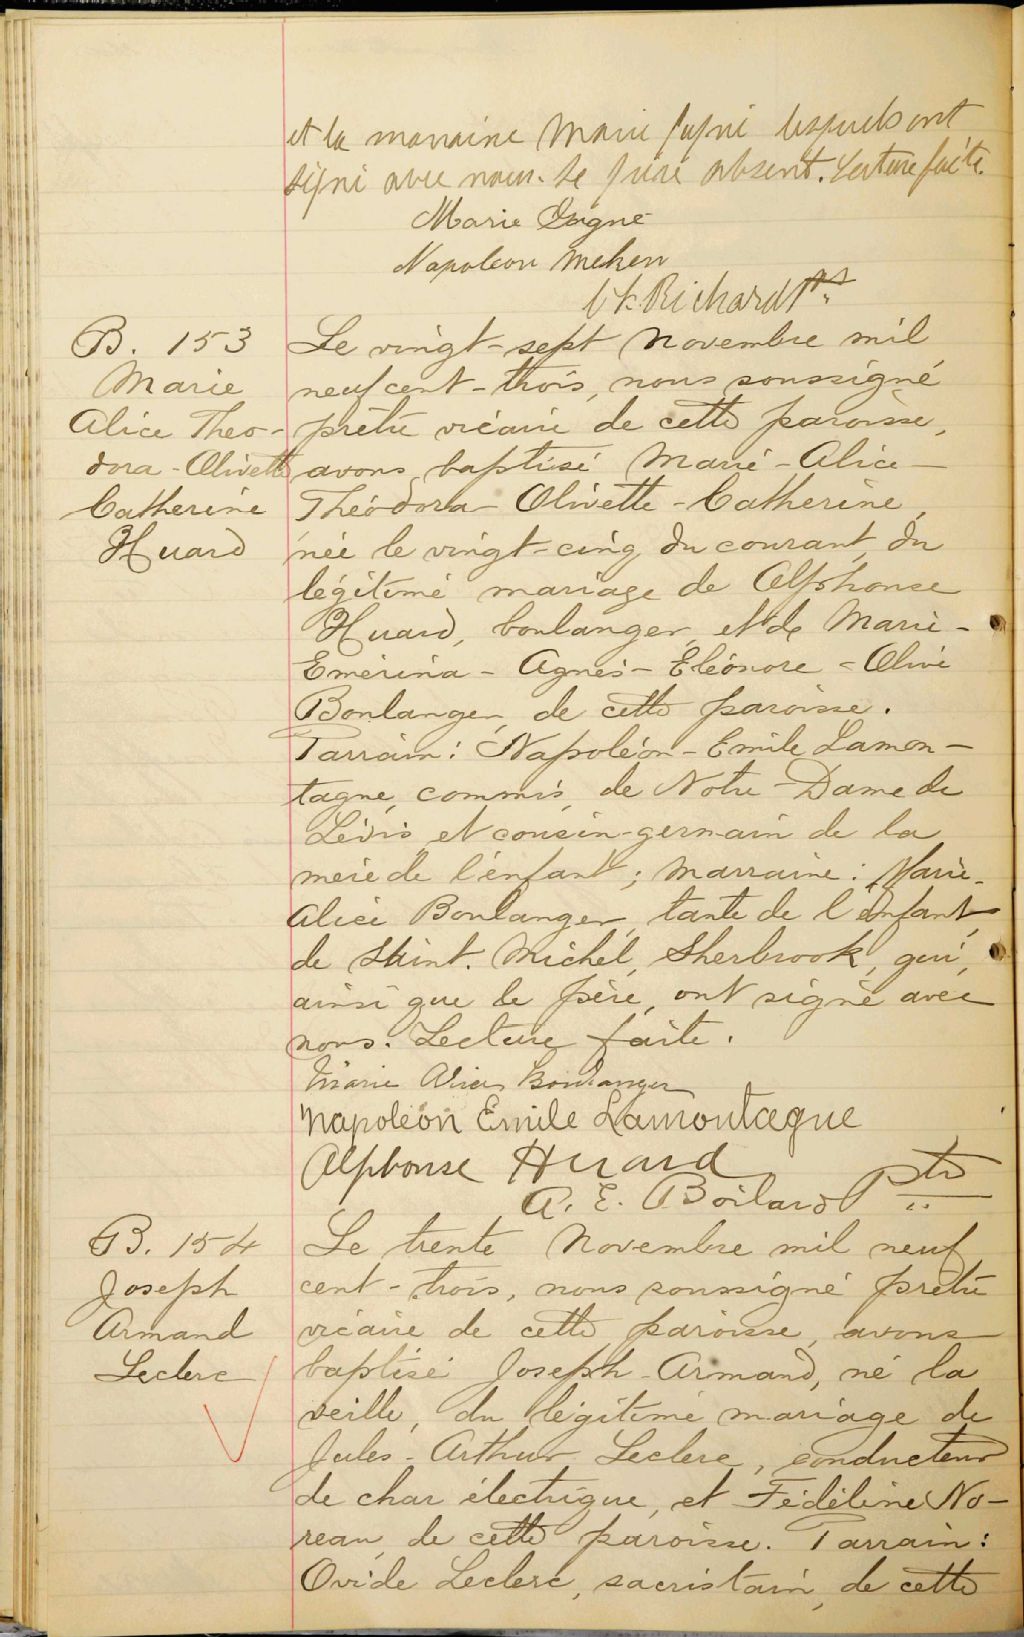 et la marraine Marie Gagné lesquels ont
signé avec nous. Le père absent. Lecture faite.
Marie Gagné
Napoleon Mehen
Richard Ptre
B. 153
Marie
Alice Theo-
dora-Olivette
Catherine
Huard
Le vingt-sept Novembre mil
neuf cent-trois, nous soussigné
prêtre vicaire de cette paroisse,
avons baptisé Marie-Alice-
Théodora-Olivette-Catherine,
née le vingt-cinq du courant, du
légitime mariage de Alphonse
Huard, boulanger, et de Marie-
Emérina-Agnès-Eléonore-Olive
Boulanger, de cette paroisse.
Parrain: Napoléon-Emile Lamon-
tagne, commis, de Notre-Dame de
Lévis, et cousin-germain de la
mère de l'enfant; marraine: Marie-
Alice Boulanger, tante de l'enfant,
de Saint. Michel, Sherbrook, qui,
ainsi que le père, ont signé avec
nous. Lecture faite.
Marie Alice Boulanger
Napoléon Emile Lamontagne
Alphonse Huard
A. E. Boilard Ptre
B. 154
Joseph
Armand
Leclerc
Le trente Novembre mil neuf
cent-trois, nous soussigné prêtre
vicaire de cette paroisse, avons
baptisé Joseph-Armand, né la
veille, du légitime mariage de
Jules-Arthur Leclerc, conducteur
de char électrique, et Fédéline No-
reau, de cette paroisse. Parrain:
Ovide Leclerc, sacristain, de cette